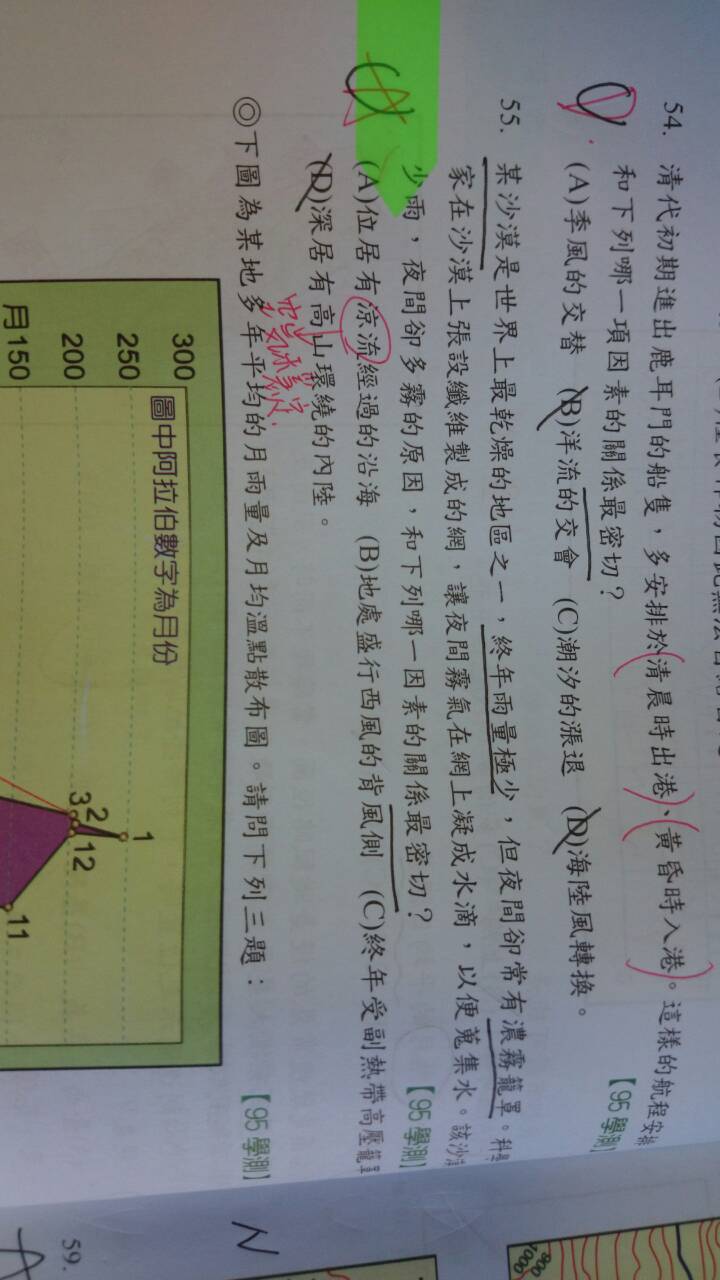 54. 清代初期進出鹿耳門的船隻，多安排於清晨時出港、黃昏時入港。這樣的航程安排
和下列哪一項因素的關係最密切？【95學測】
D (A)季風的交替 (B)洋流的交會 (C)潮汐的漲退 (D)海陸風轉換。
55. 某沙漠是世界上最乾燥的地區之一，終年雨量極少，但夜間卻常有濃霧籠罩。科
家在沙漠上張設纖維製成的網，讓夜間霧氣在網上凝成水滴，以便蒐集水。該沙
少雨，夜間卻多霧的原因，和下列哪一因素的關係最密切？【95學測】
A (A)位居有涼流經過的沿海 (B)地處盛行西風的背風側 (C)終年受副熱帶高壓籠罩
(D)深居有高山環繞的內陸。
◎下圖為某地多年平均的月雨量及月均溫點散布圖。請問下列三題：【95學測】
300
圖中阿拉伯數字為月份
250
1
200
2
3
12
月150
11
59.
900
1000